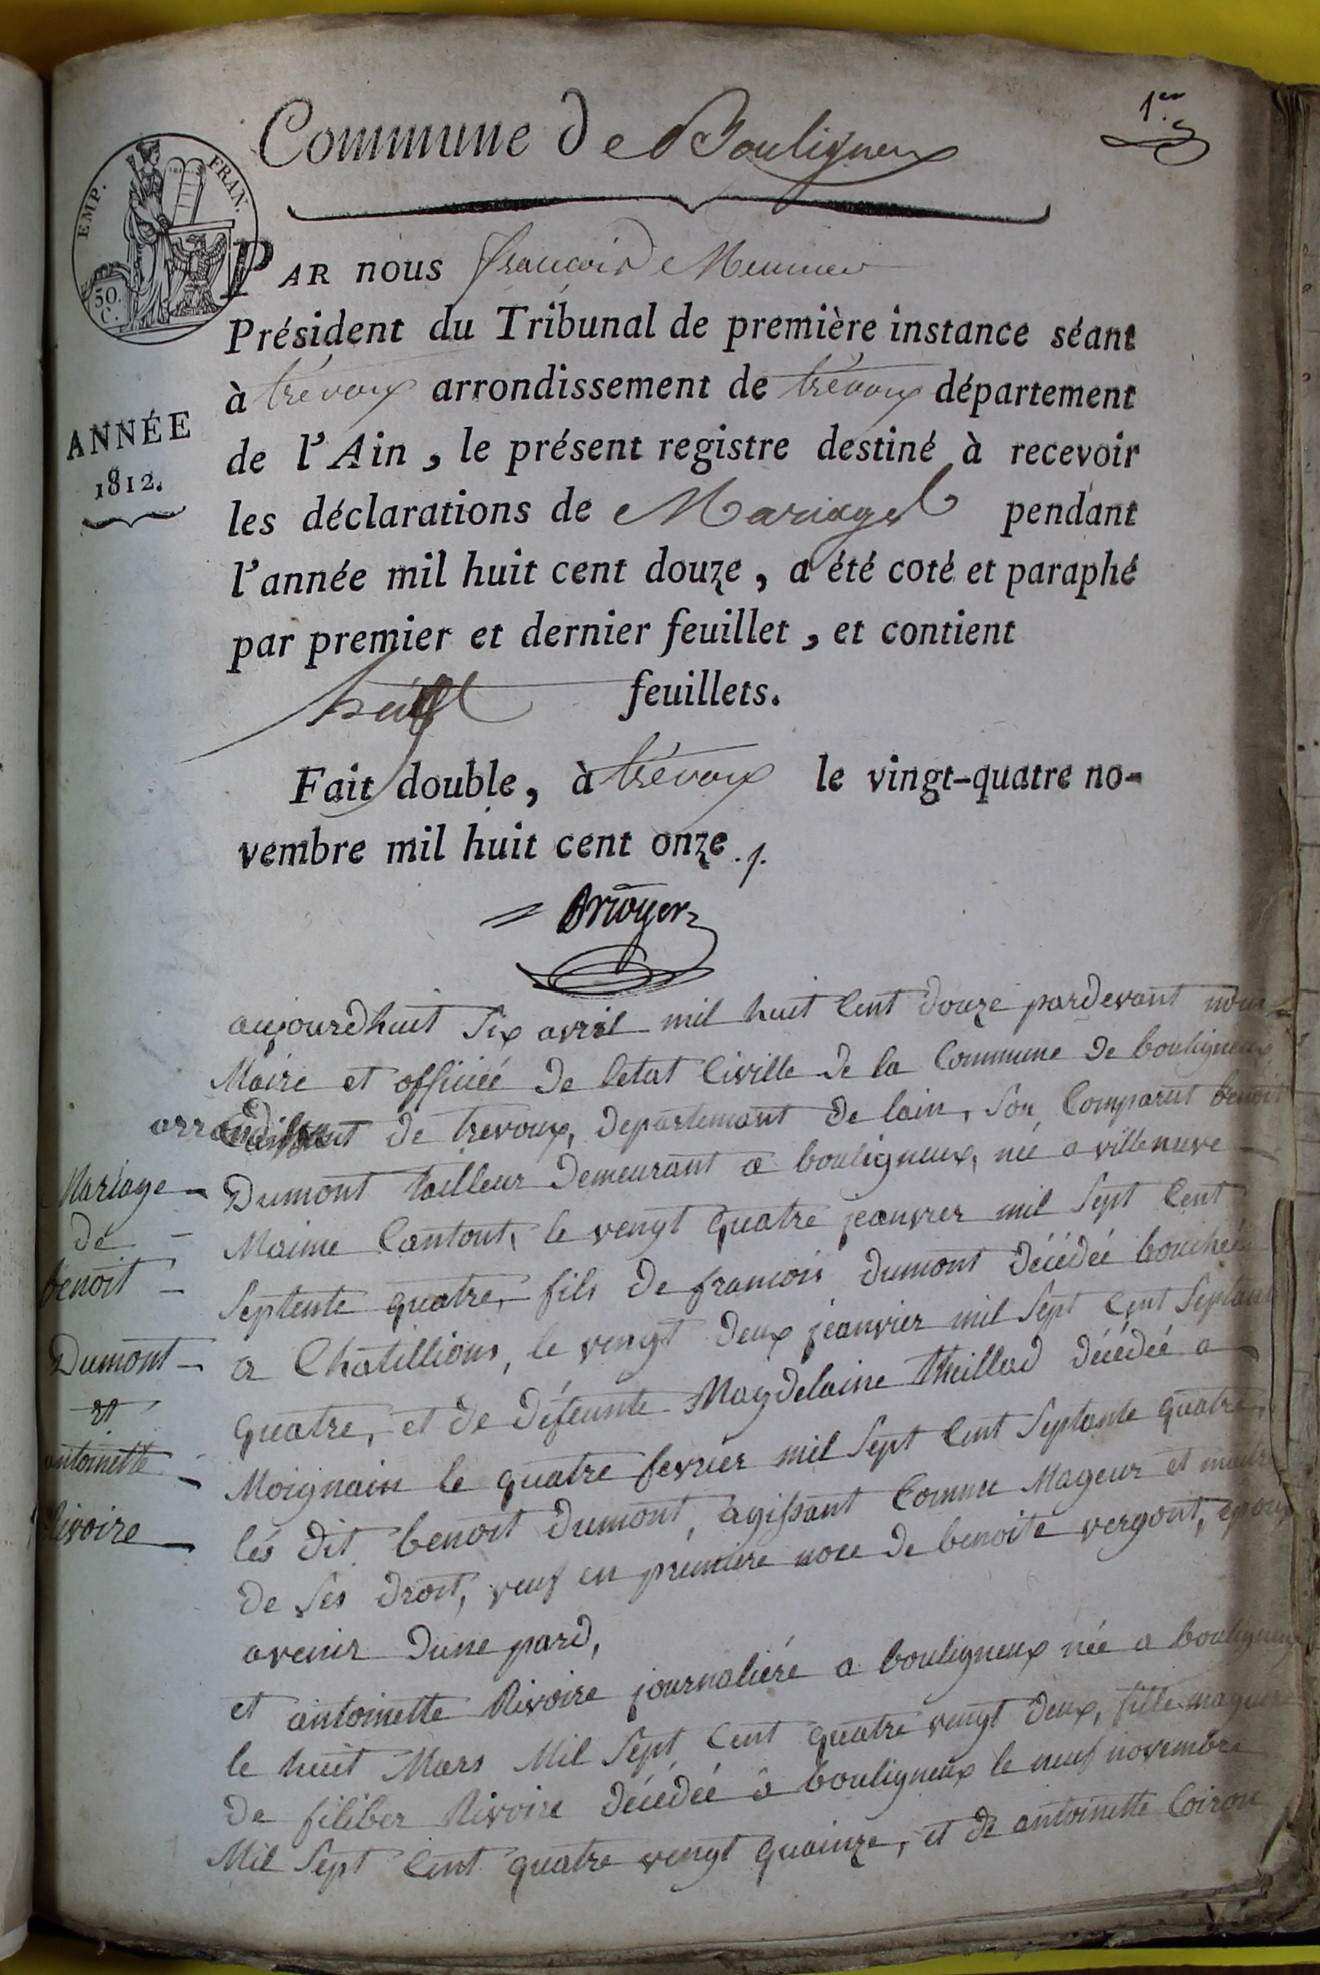 1.er
Commune de Bouligneux
EMP. FRAN.
50.
C.
PAR nous françois Meunier
Président du Tribunal de première instance séant
à trévoux arrondissement de trévoux département
de l'Ain, le présent registre destiné à recevoir
les déclarations de Mariages pendant
l'année mil huit cent douze, a été coté et paraphé
par premier et dernier feuillet, et contient
huit feuillets.
Fait double, à trévoux le vingt-quatre no-
vembre mil huit cent onze
ANNÉE
1812.
aujourdhuit six avril mil huit Cent douze pardevant nous
Maire et officiée de letat Civille de la Commune de bouligneux
arrondissment de trevoux, departemant de lain, son Comparut benoit
Dumont tailleur Demeurant a bouligneux, née a villeneuve
Maime Cantont, le vengt quatre jeanvier mil sept Cent
septente quatre, fils de francois dumont décédée
a Chatillions, le vengt deux jeanvier mil sept Cent septante
quatre, et de défeunte Magdelaine theillad décédée a
Moignain le quatre fevrier mil sept Cent septante quatre,
lés dit benoit dumont, agissant Comme Mageur et maitre
de ses droit, veuf en première noce de benoite vergont, epoux
avenir dune pard,
et antoinette Rivoire journaliéré a bouligneux née a bouligneux
le huit Mars Mil sept Cent quatre vengt deux, fille mageure
de filiber Rivoire décédée a bouligneux le neuf novembre
Mil sept Cent quatre vengt quainze, et de antoinette Coiron
Mariage
de
benoit
Dumont
et
antoinette
Rivoire